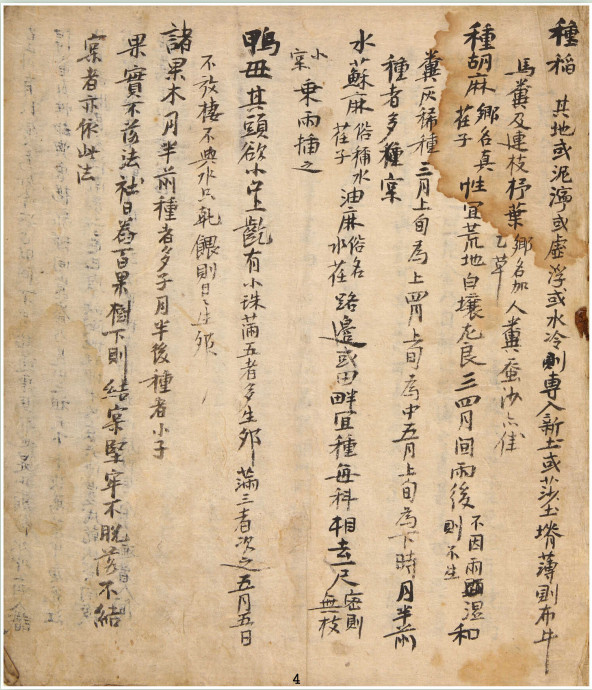 種稻 其地或泥濘或虛浮或水冷則專入新土或莎土堉薄則布牛
馬糞及連枝杼葉鄕名加乙草人糞蚕沙亦佳
種胡麻鄕名真荏子性宜荒地白壤尤良三四月間雨後不因雨濕則不生和
糞灰稀種三月上旬爲上四月上旬爲中五月上旬爲下時月半前
種者多種实
水蘇麻俗稱水荏子油麻俗名水荏路邊或田畔宜種每科相去一尺密則無枝
小实乗雨揷之
鴨母其頭欲小口上齕有小珠蒲五者多生夘蒲三者次之五月五日
不放棲不與水只乾餵則日〻生夘
諸果木月半前種者多子月半後種者小子
果實不落法社日舂百果樹下則結实堅牢不脫落不結
实者亦依此法
4